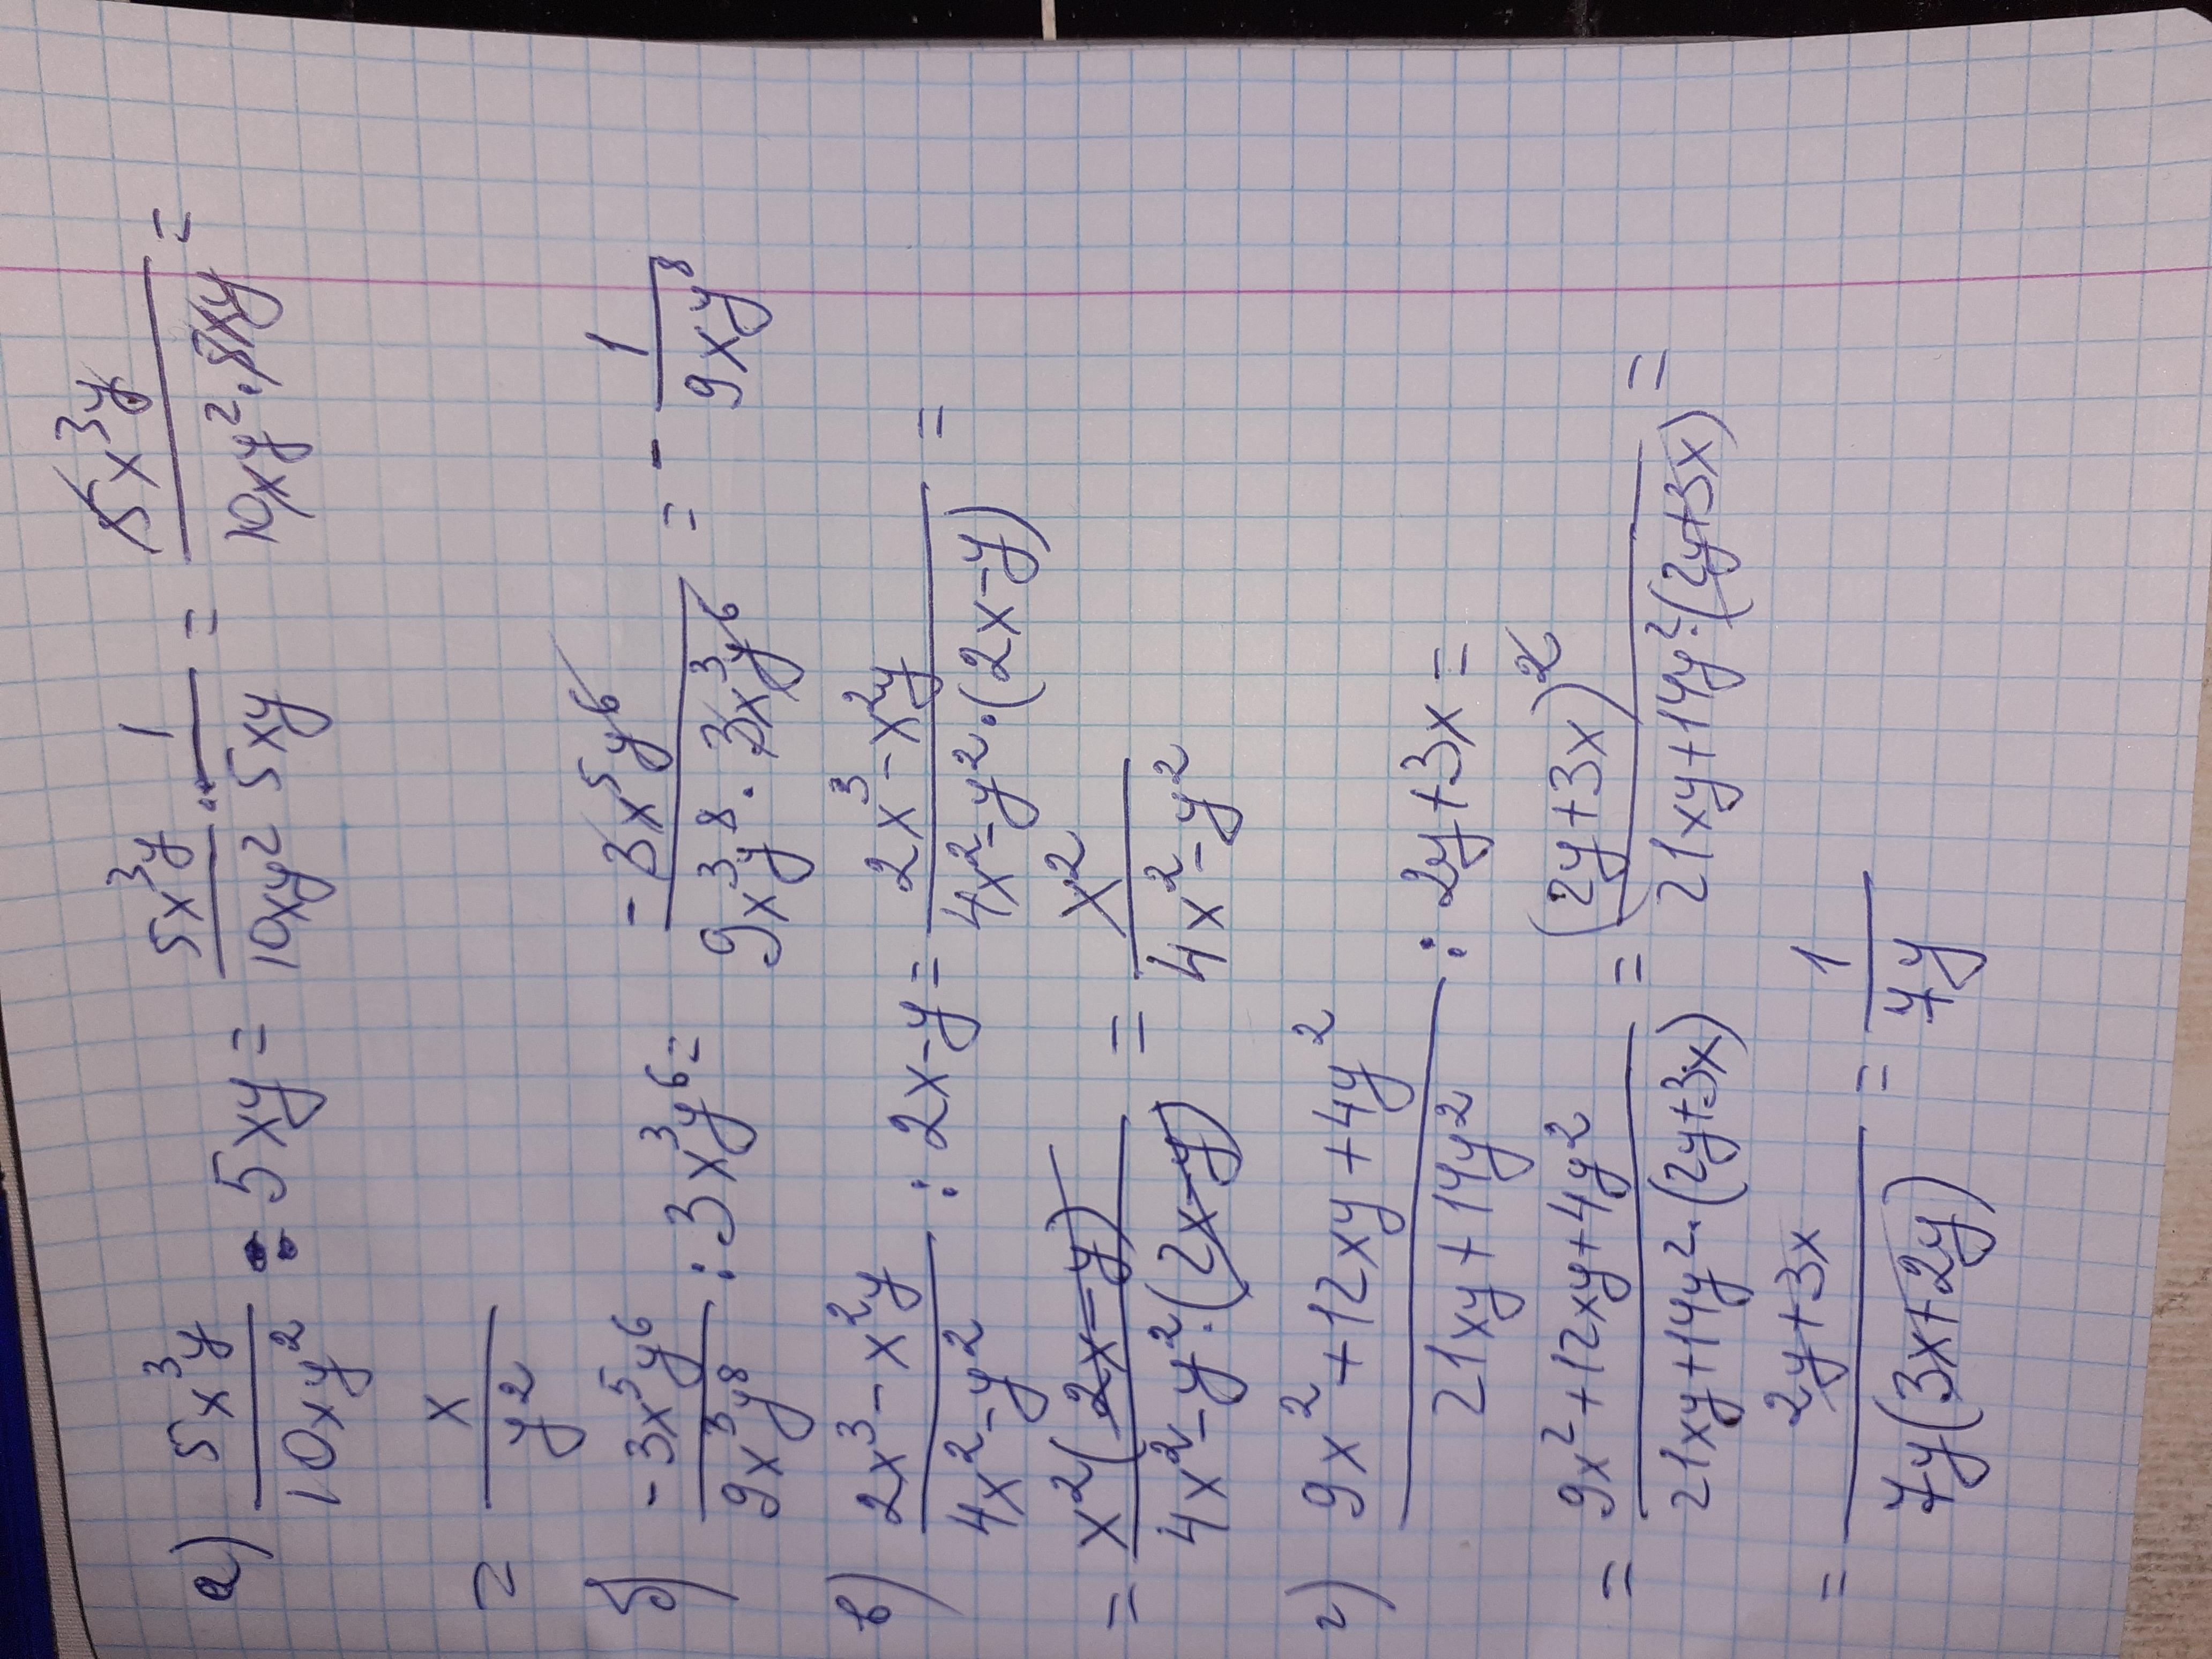 а) 5x³y/10xy² : 5xy = 5x³y/10xy² · 1/5xy = 5x³y/10xy²·5xy =
= x/y²
б) -3x⁵y⁶/9x³y⁸ : 3x³y⁶ = -3x⁵y⁶/9x³y⁸·3x³y⁶ = - 1/9xy⁸
в) 2x³-x²y/4x²-y² : 2x-y = 2x³-x²y/4x²-y²·(2x-y) =
= x²(2x-y)/4x²-y²·(2x-y) = x²/4x²-y²
г) 9x²+12xy+4y²/21xy+14y² : 2y+3x =
= 9x²+12xy+4y²/21xy+14y²·(2y+3x) = (2y+3x)²/21xy+14y²·(2y+3x) =
= 2y+3x/7y(3x+2y) = 1/7y